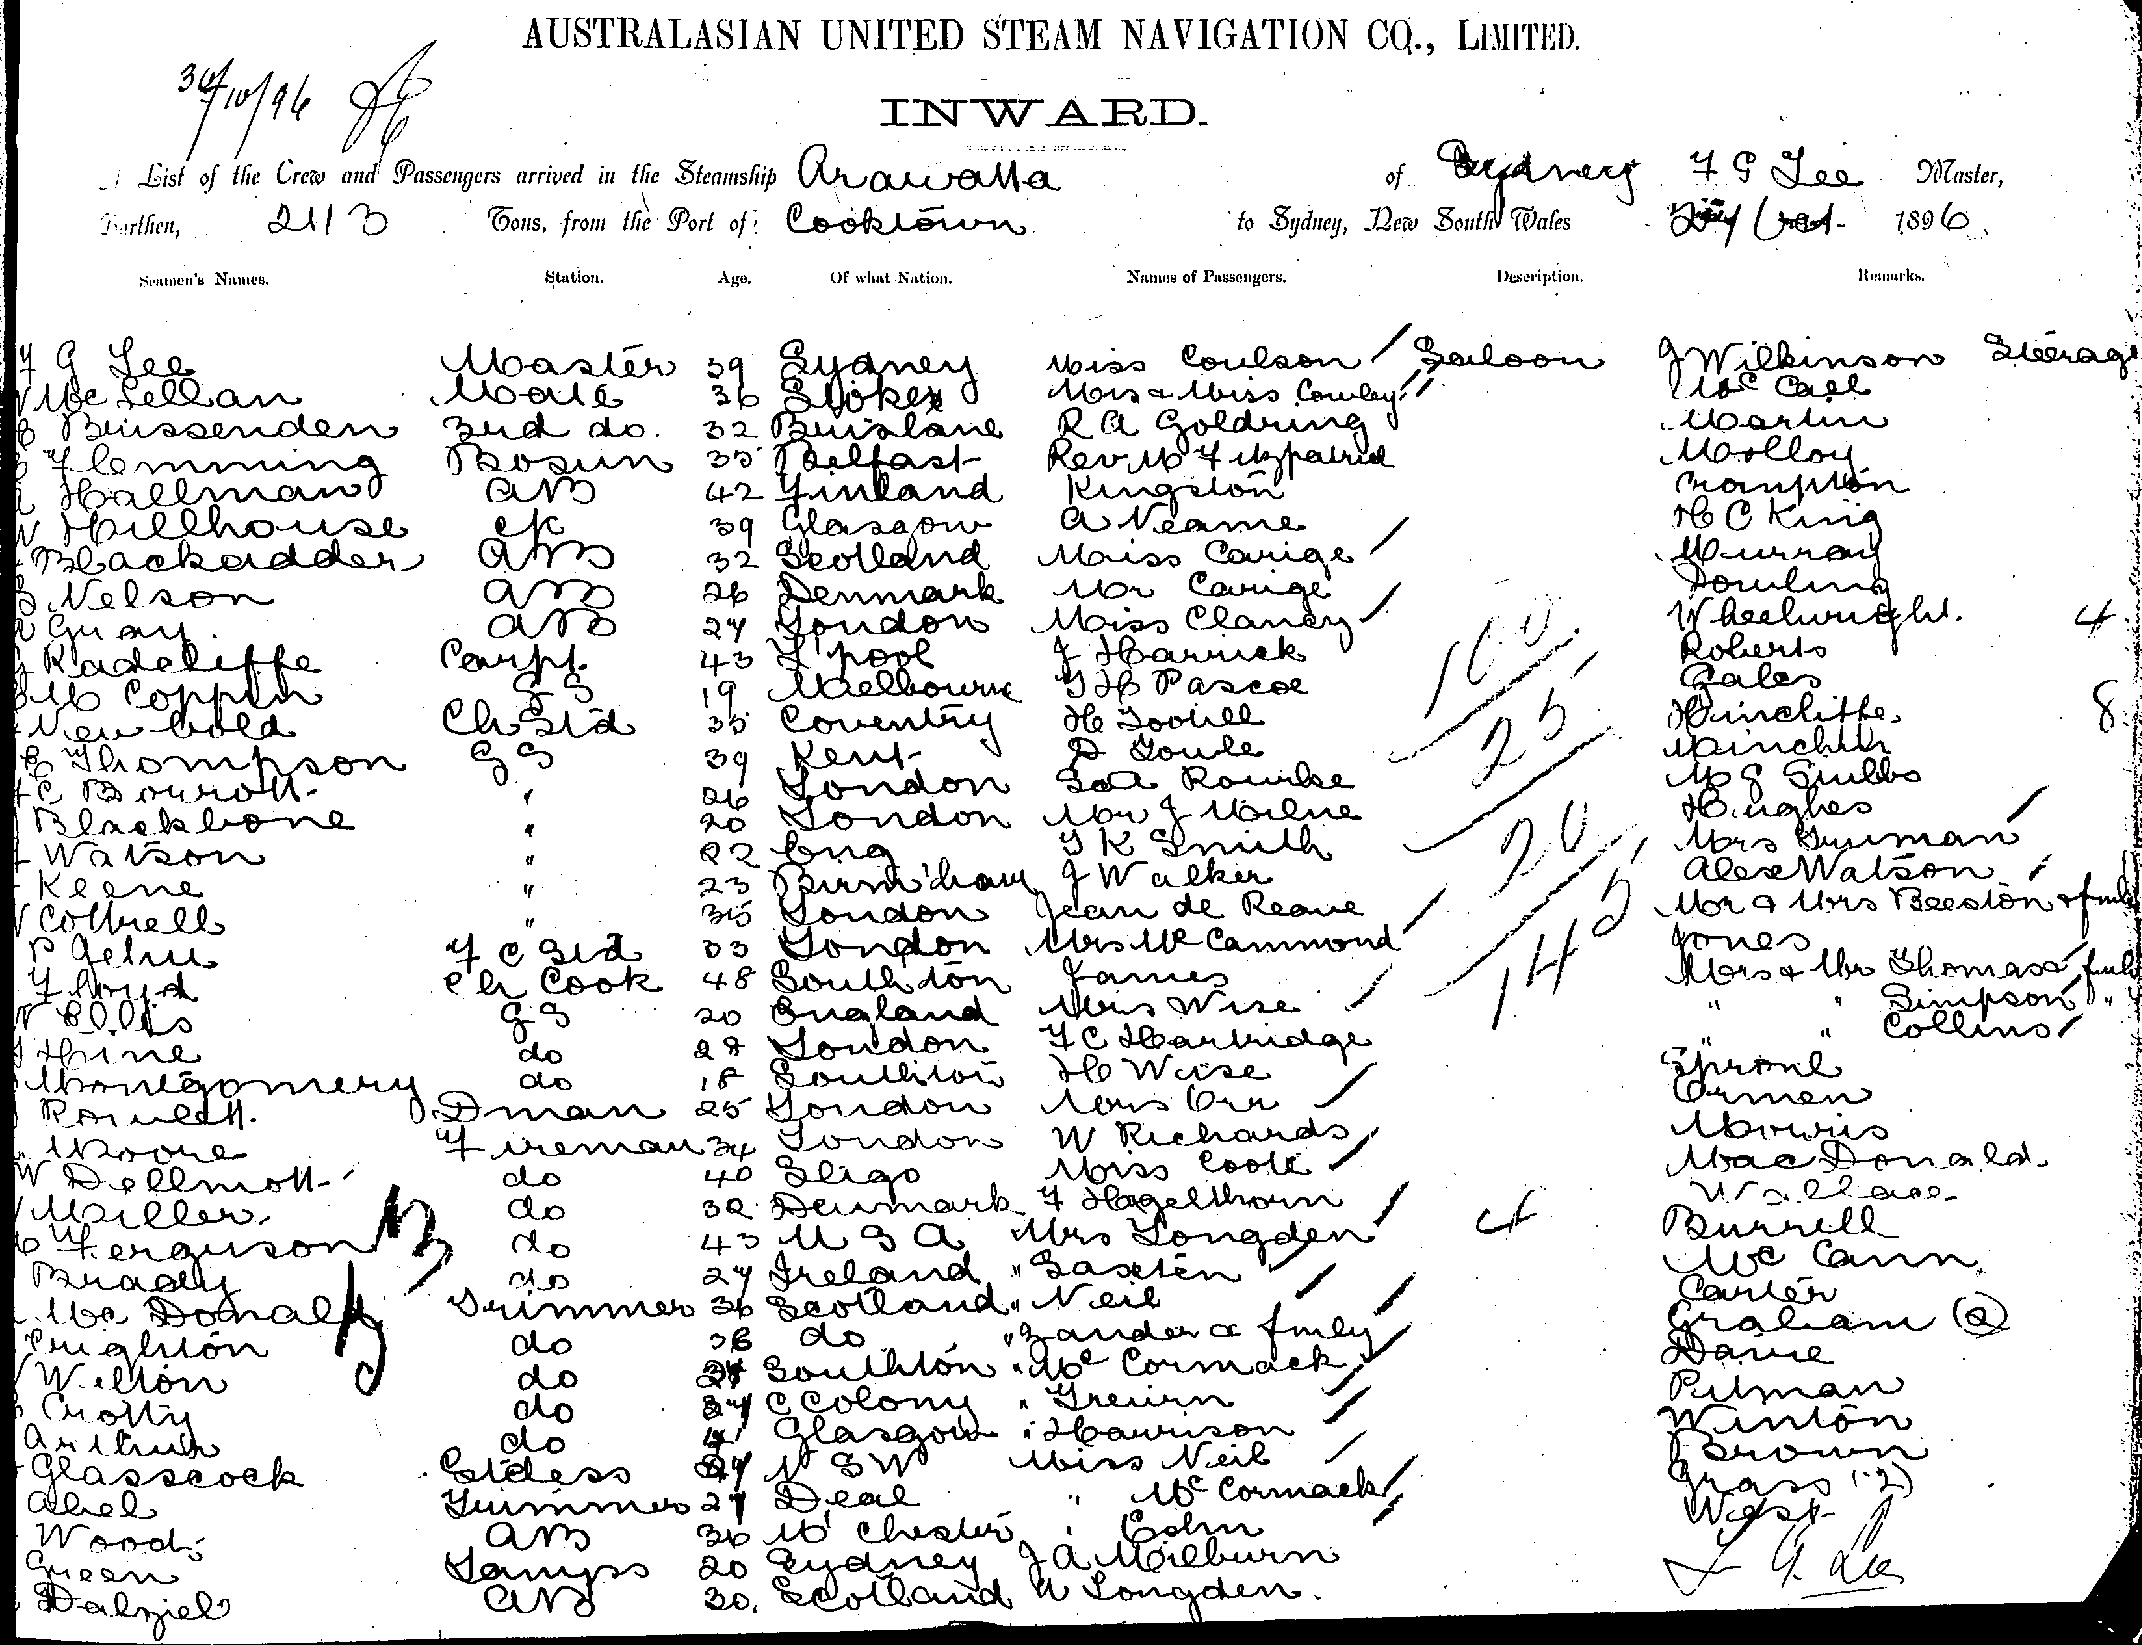 AUSTRALASIAN UNITED STEAM NAVIGATION CO., LIMITED.
30/10/96
INWARD.
List of the Crew and Passengers arrived in the Steamship Arawatta of Sydney F G Lee Master,
Burthen, 2113 Tons, from the Port of Cooktown to Sydney, New South Wales Oct 1896
Seamen's Names. Station. Age. Of what Nation. Names of Passengers. Description. Remarks.
F G Lee Master 39 Sydney Miss Coulson Saloon J Wilkinson Steerage
McLellan Mate 36 Stokes Mrs & Miss Cowley McCall
Brissenden 2nd do. 32 Brisbane R A Goldring Martin
Flemming Bosun 35 Belfast Rev M Fitzpatrick Molloy
Hallman AB 42 Finland Kingston Crampton
Hillhouse 39 Glasgow A Neame H C King
Blackadder AB 32 Scotland Miss Carige Murray
Nelson AB 26 Denmark Mr Carige Dowling
Gray AB 27 London Miss Clancy 100 Wheelwright. 4
Radcliffe Carpt. 43 L'pool J Harrick Roberts
M Coppin GS 19 Melbourne T H Pascoe Gales
Newbold Ch Std 35 Coventry H Toohill 25 Hincliffe 8
Thompson GS 39 Kent D Towle Minchin
C Bourott " 26 London Rourke M G Stubbs
Blackbone " 20 London Mr J Milne Hughes
Watson " 22 Eng T K Smith 20 Mrs Truman
Keene " 23 Birm'ham J Walker Alex Watson
Cottrell " 35 London Jean de Reave Mr & Mrs Beeston & fmly
F C Std 33 London Mrs McCammond 145 Jones
Lloyd Ch Cook 48 South'ton James Mrs & Mr Thomas & fmly
Ellis GS 20 England Mrs Wise " " Simpson "
Hine do 28 London F C Hartridge " " Collins
Montgomery do 18 South'ton H Wise Sproul
Rowlett D man 25 London Mrs Orr Ormen
Moore Fireman 34 London W Richards Morris
W Dellmott do 40 Sligo Miss Cook MacDonald
Miller do 32 Denmark F Hagelthorn 4 Wallace
Ferguson do 43 U S A Mrs Longden Burrell
Brady do 27 Ireland " Saxten McCann
McDonald Trimmer 36 Scotland " Neil Carter
Crighton do 38 do " Zander & fmly Graham (2)
Wilton do South'ton " McCormack Davie
Crotty do C Colony " Pitman
Arthur do Glasgow " Harrison Winton
Glasscock St'dess N S W Miss Neil Brown
Abel Trimmer 27 Deal " McCormack Grass (2)
Wood AB 36 M'chester " West
Green Lamps 20 Sydney J A Milburn F G Lee
Dalziel AB 30. Scotland Longden.